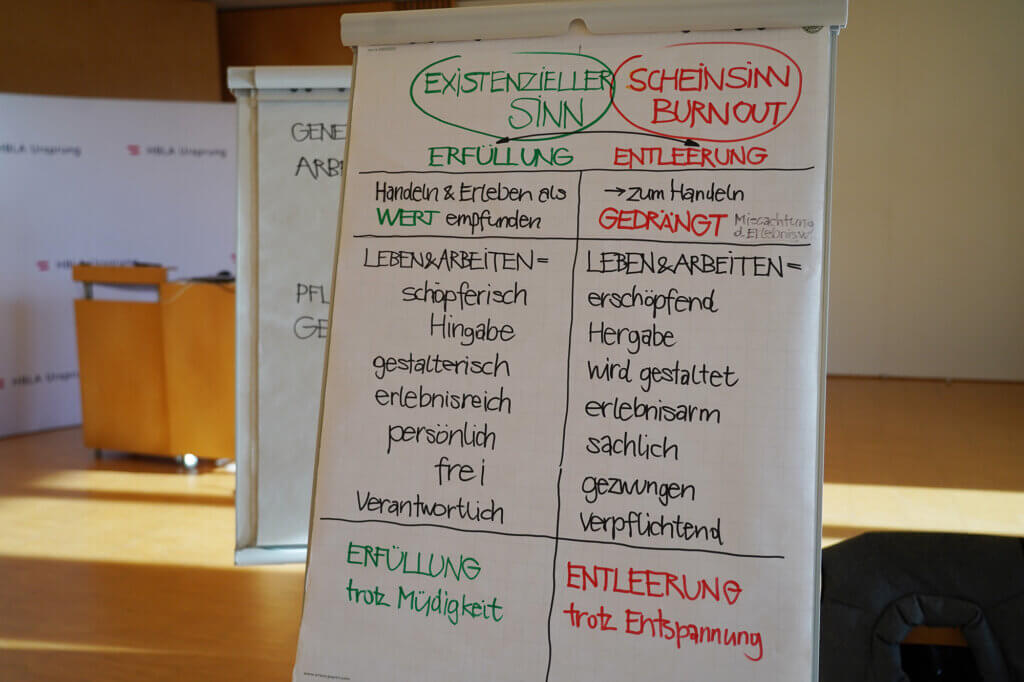 EXISTENZIELLER
SINN
SCHEINSINN
BURNOUT
ERFÜLLUNG
ENTLEERUNG
Handeln & Erleben als
WERT empfunden
→ zum Handeln
GEDRÄNGT
Missachtung
d. Erlebnisw.
LEBEN&ARBEITEN=
schöpferisch
Hingabe
gestalterisch
erlebnisreich
persönlich
frei
verantwortlich
LEBEN&ARBEITEN=
erschöpfend
Hergabe
wird gestaltet
erlebnisarm
sachlich
gezwungen
verpflichtend
ERFÜLLUNG
trotz Müdigkeit
ENTLEERUNG
trotz Entspannung
GENE
ARBE
PFL
GE
HBLA Ursprung
HBLA Ursprung
HBLA Ursprung